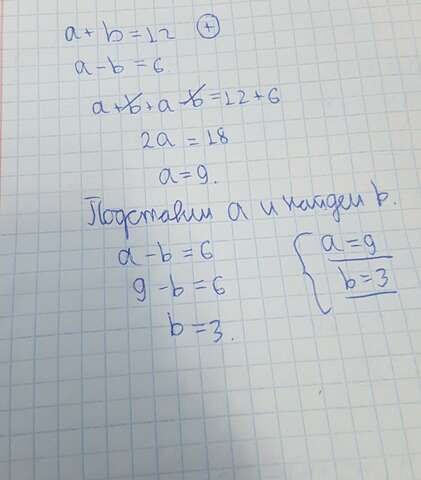 a + b = 12 (+)
a - b = 6
a + b + a - b = 12 + 6
2a = 18
a = 9.
Подставим a и найдем b.
a - b = 6
9 - b = 6
b = 3.
{ a = 9
b = 3